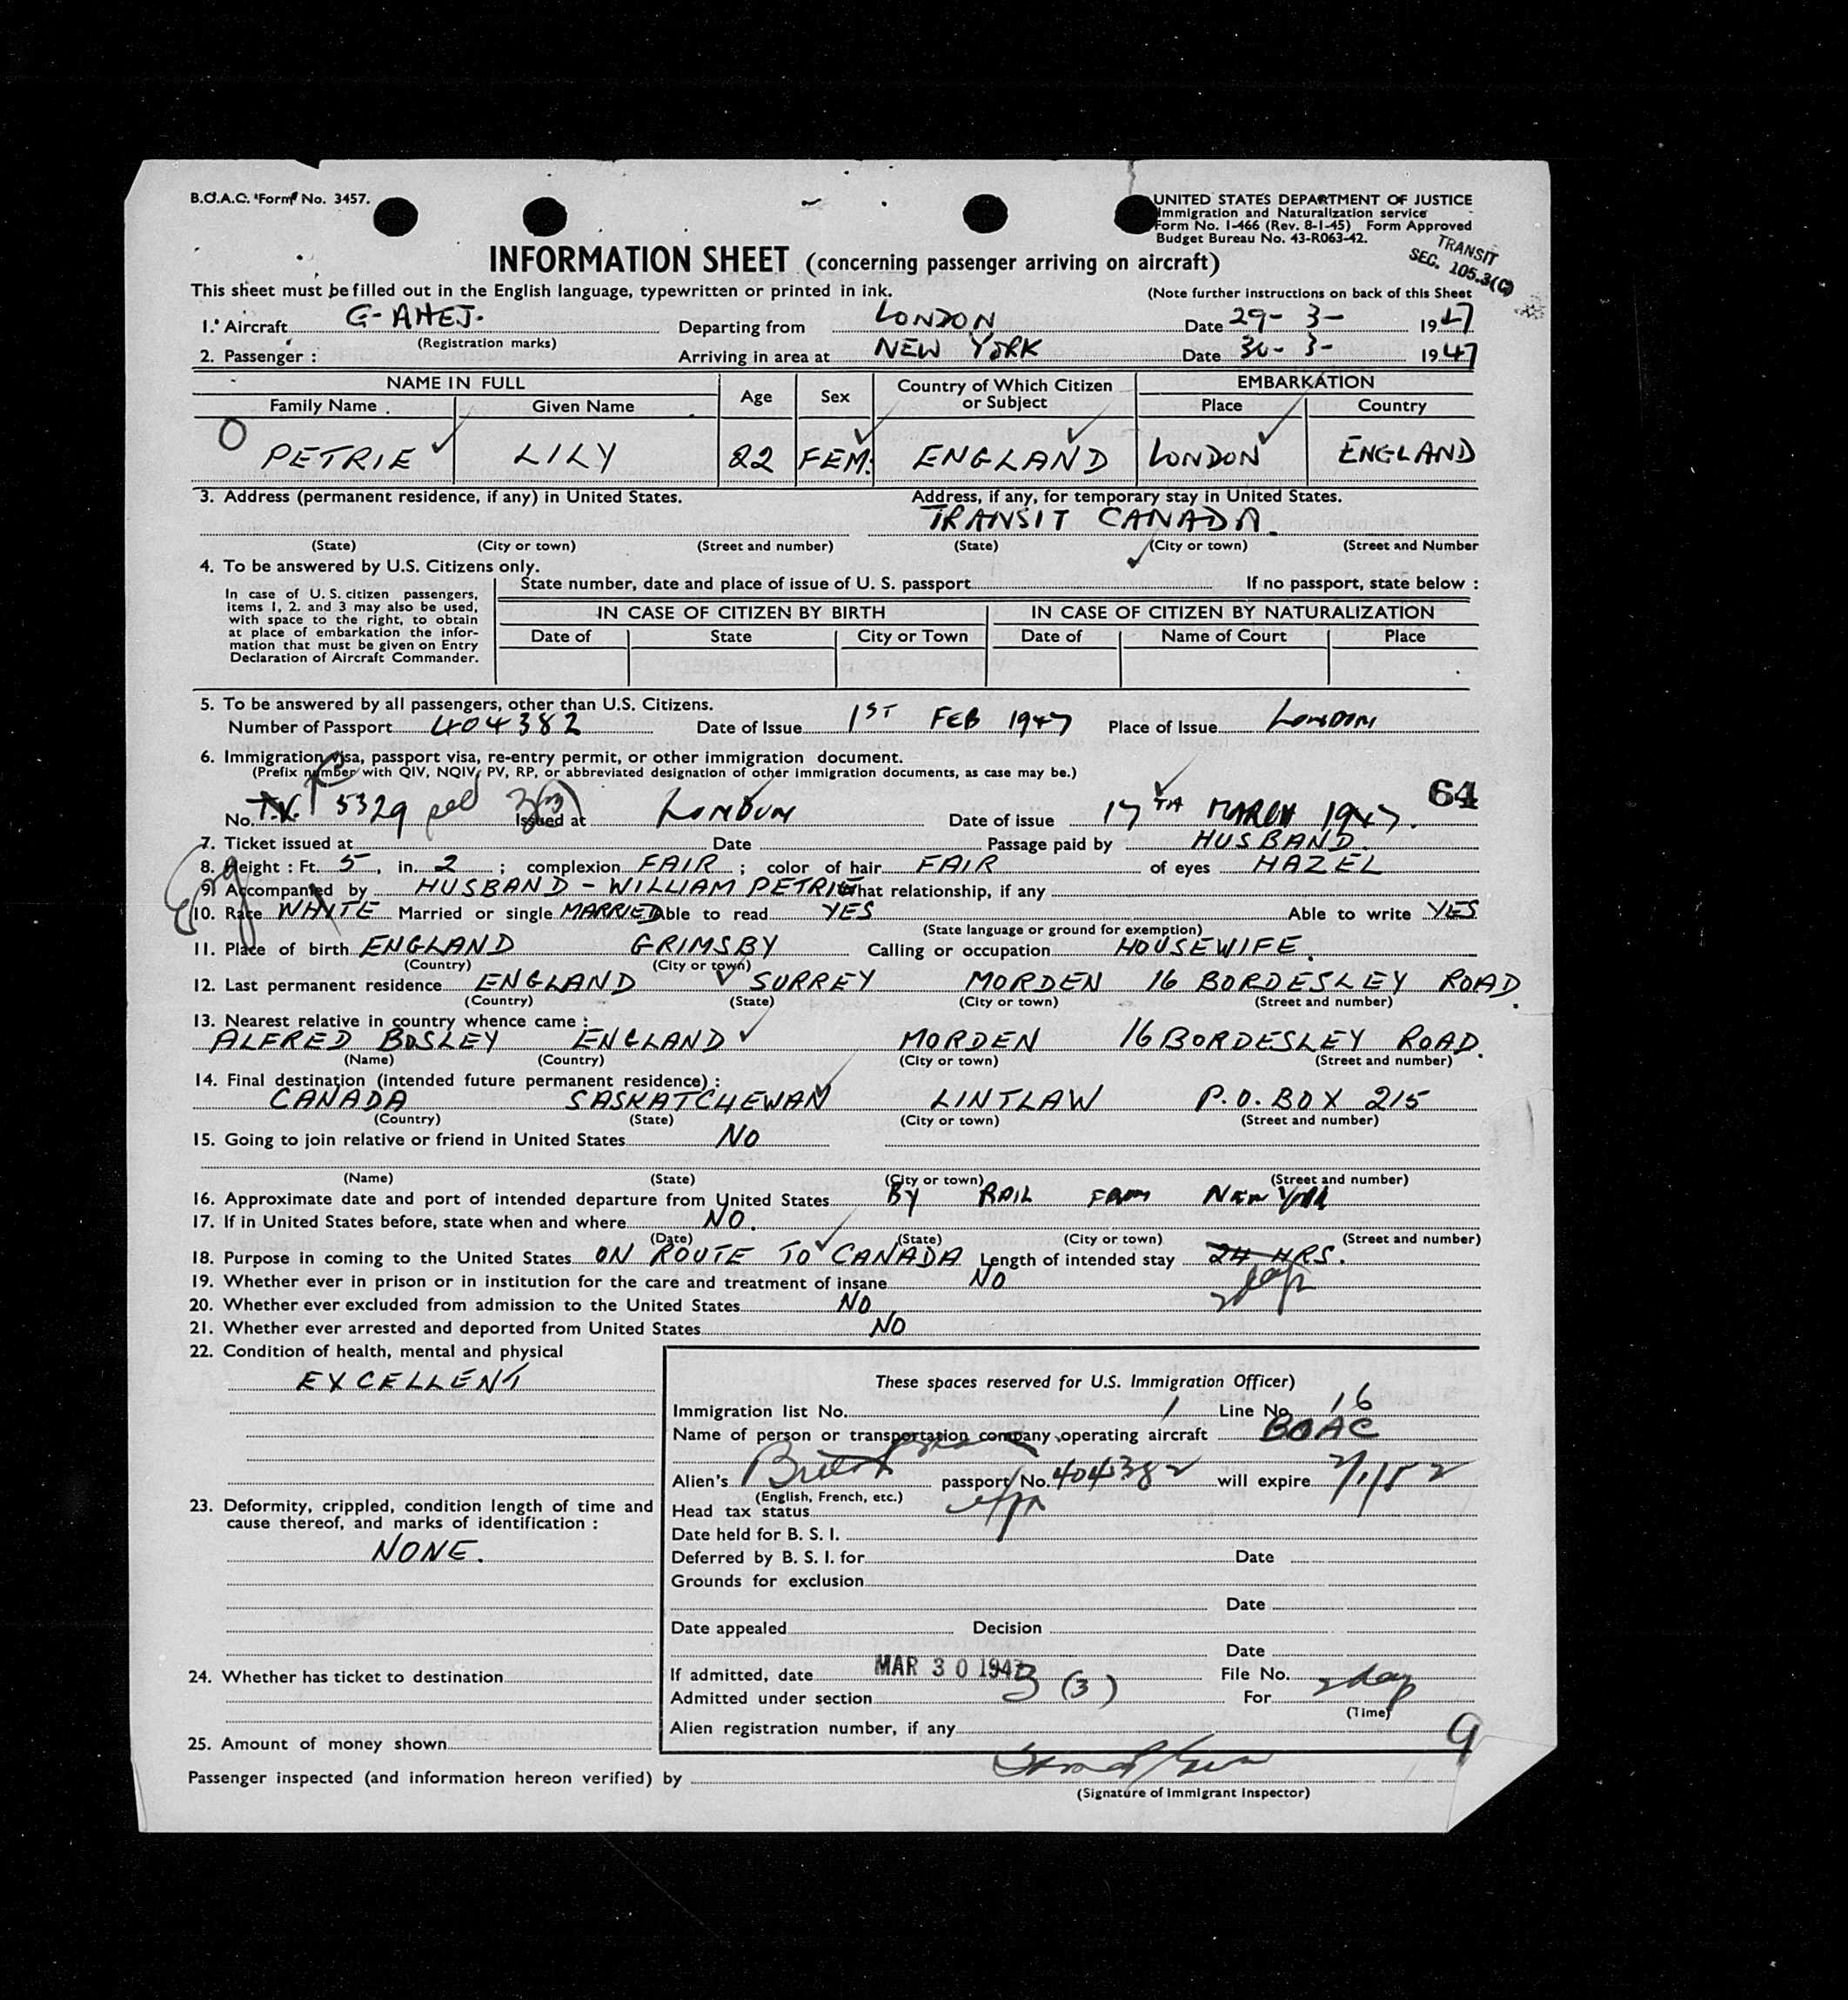 B.O.A.C. Form No. 3457.
UNITED STATES DEPARTMENT OF JUSTICE
Immigration and Naturalization service
Form No. I-466 (Rev. 8-1-45) Form Approved
Budget Bureau No. 43-R063-42.
TRANSIT
SEC. 105.3(C)
INFORMATION SHEET (concerning passenger arriving on aircraft)
This sheet must be filled out in the English language, typewritten or printed in ink.
(Note further instructions on back of this Sheet
1. Aircraft G-AHEJ. Departing from LONDON Date 29-3- 1947
(Registration marks)
2. Passenger : Arriving in area at NEW YORK Date 30-3- 1947
NAME IN FULL Age Sex Country of Which Citizen or Subject EMBARKATION
Family Name Given Name Place Country
PETRIE LILY 22 FEM. ENGLAND LONDON ENGLAND
3. Address (permanent residence, if any) in United States. Address, if any, for temporary stay in United States.
TRANSIT CANADA.
(State) (City or town) (Street and number) (State) (City or town) (Street and Number
4. To be answered by U.S. Citizens only.
State number, date and place of issue of U. S. passport If no passport, state below :
In case of U. S. citizen passengers,
items 1, 2. and 3 may also be used,
with space to the right, to obtain
at place of embarkation the infor-
mation that must be given on Entry
Declaration of Aircraft Commander.
IN CASE OF CITIZEN BY BIRTH IN CASE OF CITIZEN BY NATURALIZATION
Date of State City or Town Date of Name of Court Place
5. To be answered by all passengers, other than U.S. Citizens.
Number of Passport 404382 Date of Issue 1ST FEB 1947 Place of Issue LONDON
6. Immigration visa, passport visa, re-entry permit, or other immigration document.
(Prefix number with QIV, NQIV, PV, RP, or abbreviated designation of other immigration documents, as case may be.)
64
No. T.V. 5329 3(3) Issued at LONDON Date of issue 17TH MARCH 1947.
7. Ticket issued at Date Passage paid by HUSBAND.
8. Height : Ft. 5, in. 2 ; complexion FAIR ; color of hair FAIR of eyes HAZEL
9. Accompanied by HUSBAND - WILLIAM PETRIE What relationship, if any
10. Race WHITE Married or single MARRIED Able to read YES Able to write YES
(State language or ground for exemption)
11. Place of birth ENGLAND GRIMSBY Calling or occupation HOUSEWIFE.
(Country) (City or town)
12. Last permanent residence ENGLAND SURREY MORDEN 16 BORDESLEY ROAD.
(Country) (State) (City or town) (Street and number)
13. Nearest relative in country whence came :
ALFRED BOSLEY ENGLAND MORDEN 16 BORDESLEY ROAD.
(Name) (Country) (City or town) (Street and number)
14. Final destination (intended future permanent residence) :
CANADA SASKATCHEWAN LINTLAW P.O. BOX 215
(Country) (State) (City or town) (Street and number)
15. Going to join relative or friend in United States NO
(Name) (State) (City or town) (Street and number)
16. Approximate date and port of intended departure from United States BY RAIL FROM NEW YORK
17. If in United States before, state when and where NO.
(Date) (State) (City or town) (Street and number)
18. Purpose in coming to the United States ON ROUTE TO CANADA Length of intended stay 24 HRS.
2 days
19. Whether ever in prison or in institution for the care and treatment of insane NO
20. Whether ever excluded from admission to the United States NO
21. Whether ever arrested and deported from United States NO
22. Condition of health, mental and physical
EXCELLENT
23. Deformity, crippled, condition length of time and
cause thereof, and marks of identification :
NONE.
24. Whether has ticket to destination
25. Amount of money shown
These spaces reserved for U.S. Immigration Officer)
Immigration list No. 1 Line No. 16
Name of person or transportation company operating aircraft BOAC
Alien's British passport No. 404382 will expire 2/1/52
(English, French, etc.)
Head tax status
Date held for B. S. I.
Deferred by B. S. I. for Date
Grounds for exclusion
Date
Date appealed Decision
Date
If admitted, date MAR 30 1947 File No.
Admitted under section 3 (3) For 2 days
(Time)
Alien registration number, if any
9
Passenger inspected (and information hereon verified) by
(Signature of Immigrant Inspector)